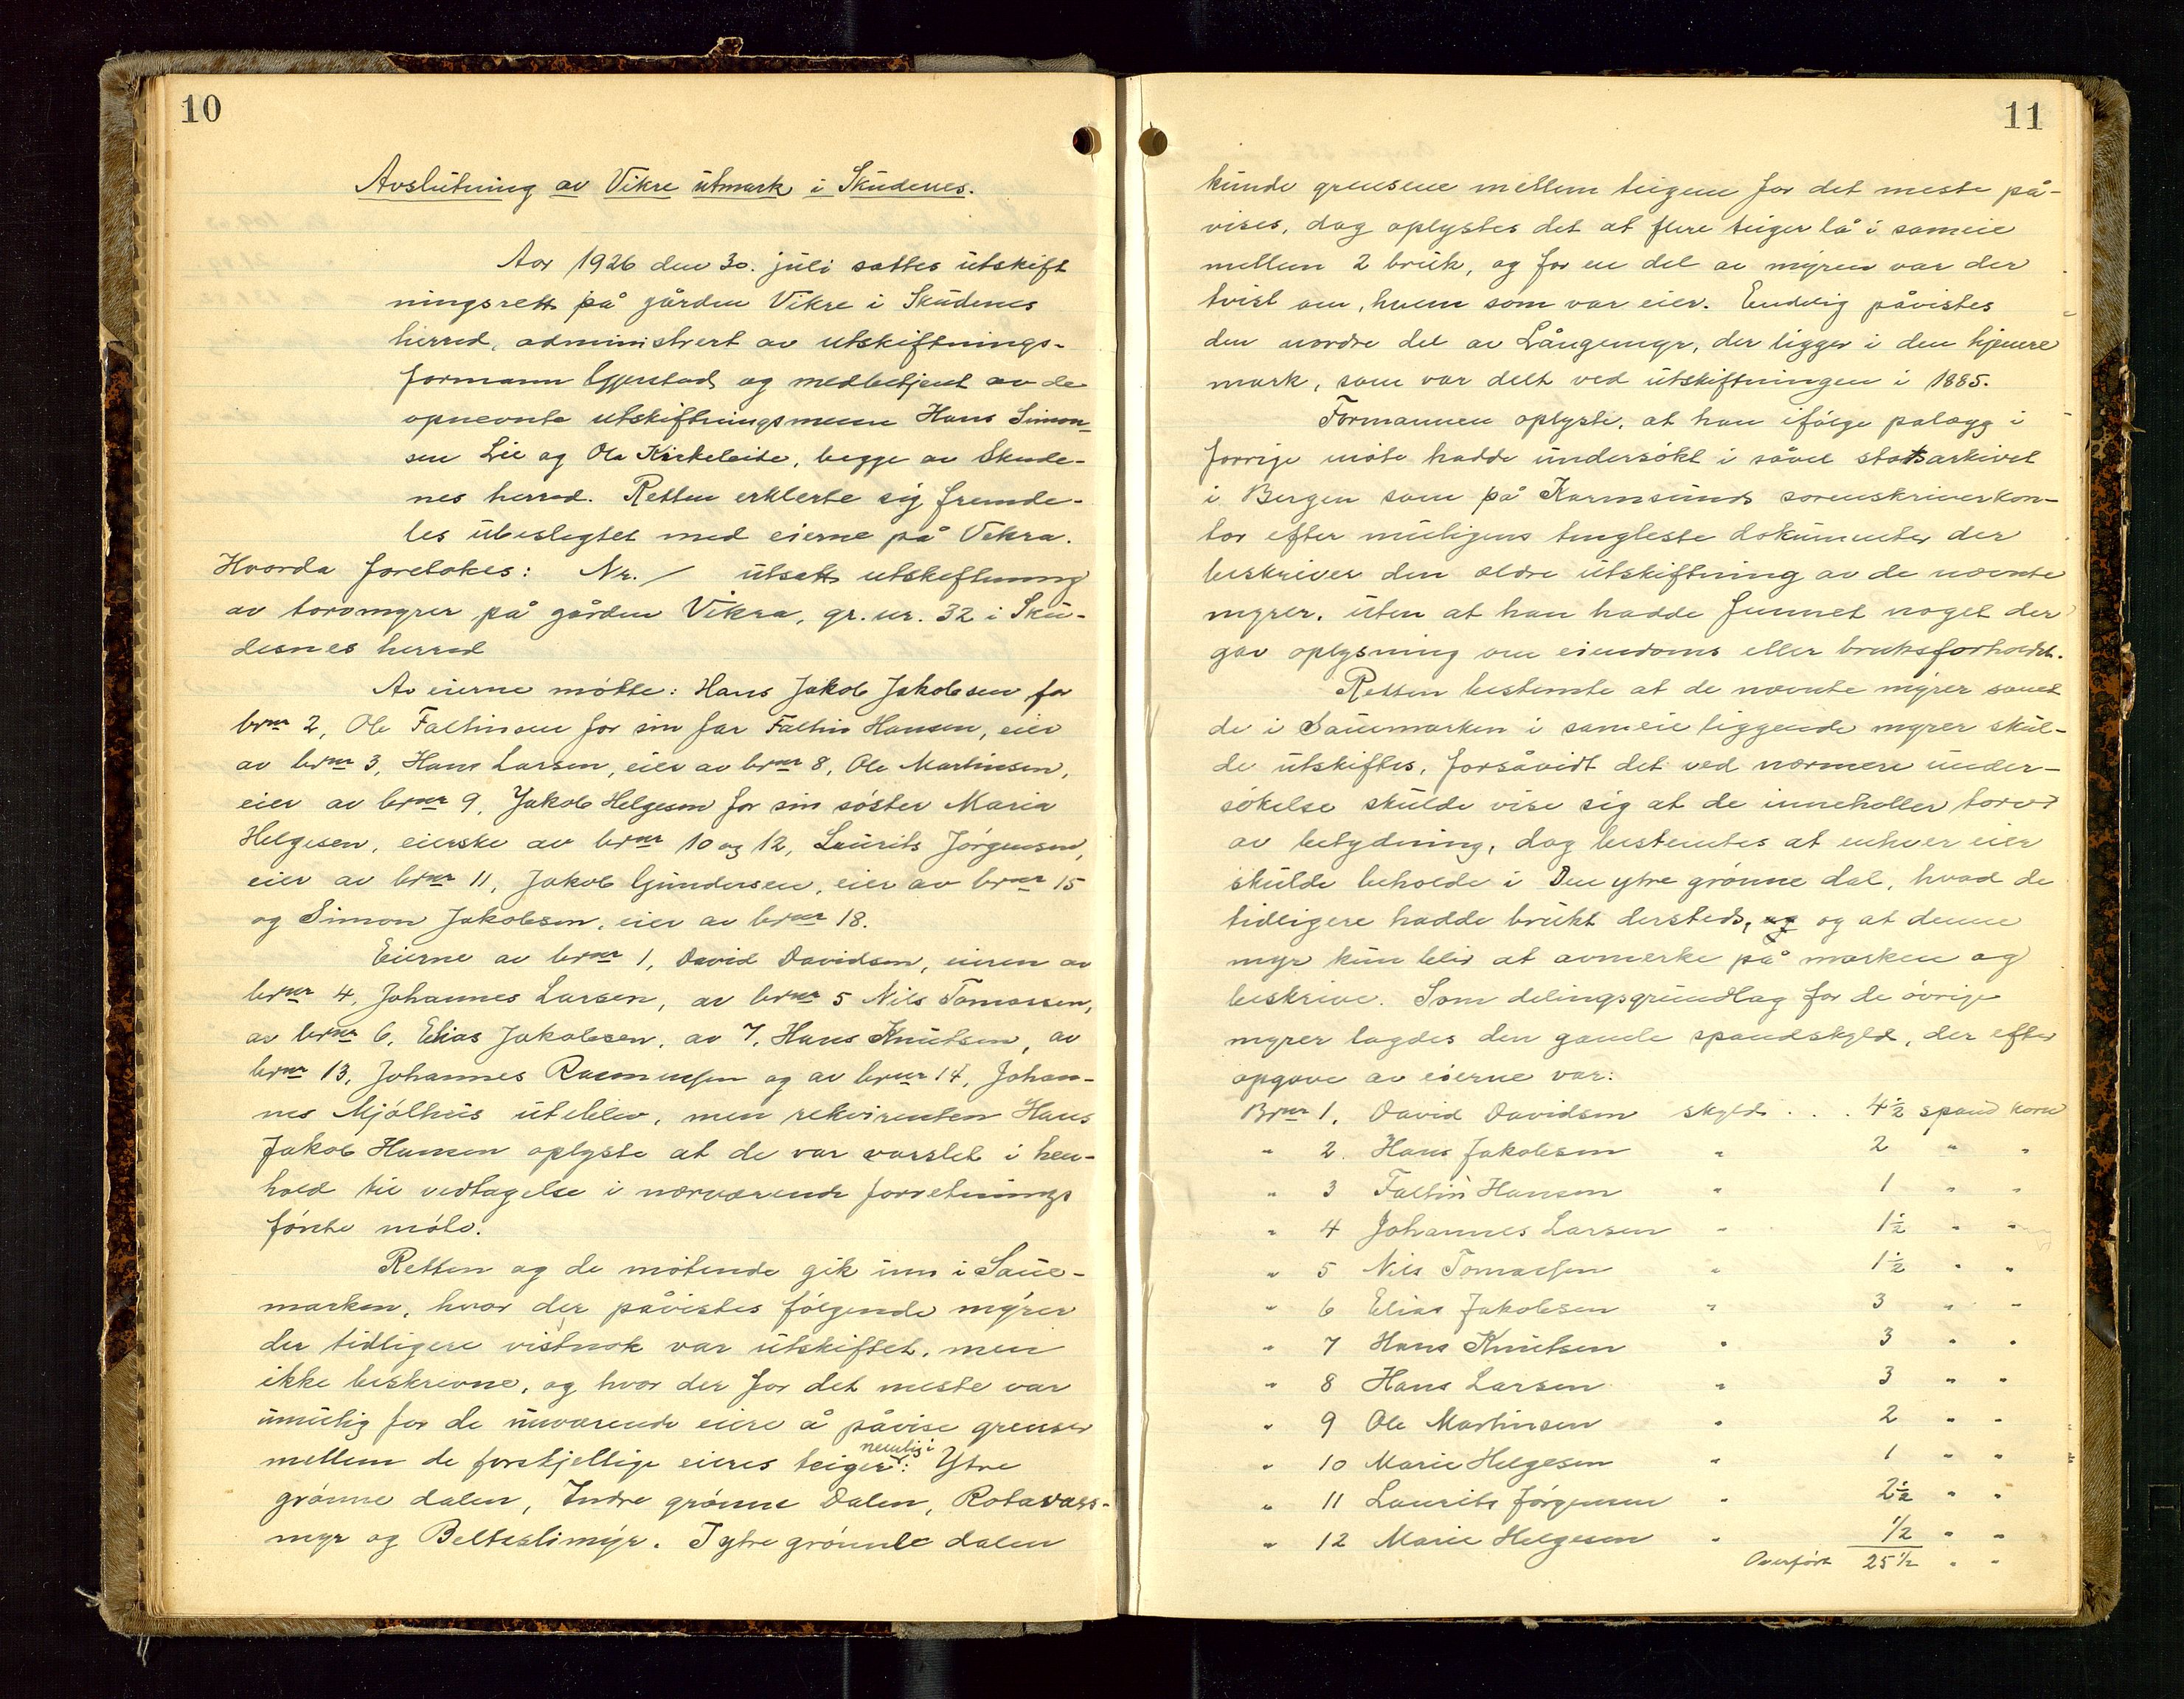 10
Avslutning av Vikre utmark i Skudenes.
Aar 1926 den 30. juli sattes utskift
ningsrett på gården Vikre i Skudenes
herred, administrert av utskiftnings-
formann Eggerstad og medbetjent av de
opnevnte utskiftningsmenn Hans Simon-
sen Lie og Ola Kirkeleite, begge av Skude-
nes herred. Retten erklerte sig fremde-
les ubeslegtet med eierne på Vikra.
Hvorda foretokes: Nr. / utsatt utskiftning
av torvmyrer på gården Vikra, gr. nr. 32 i Sku-
desnes herred
Av eierne møtte: Hans Jakob Jakobsen for
brnr 2, Ole Faltinsen for sin far Faltin Hansen, eier
av brnr 3, Hans Larsen, eier av brnr 8, Ole Martinsen,
eier av brnr 9, Jakob Helgesen for sin søster Maria
Helgesen, eierske av brnr 10 og 12, Laurits Jørgensen,
eier av brnr 11, Jakob Gundersen, eier av brnr 15
og Simon Jakobsen, eier av brnr 18.
Eierne av brnr 1, David Davidsen, eieren av
brnr 4, Johannes Larsen, av brnr 5 Nils Tomassen,
av brnr 6, Elias Jakobsen, av 7, Hans Knutsen, av
brnr 13, Johannes Rasmussen og av brnr 14, Johan-
nes Mjølhus uteblev, men rekvirenten Hans
Jakob Hansen oplyste at de var varslet i hen-
hold til vedtagelse i nærværende forretnings
første møte.
Retten og de møtende gik inn i Saue-
marken, hvor der påvistes følgende myrer
der tidligere vistnok var utskiftet, men
ikke beskrevne, og hvor der for det meste var
umulig for de nuværende eiere å påvise grenser
mellem de forskjellige eieres teiger nemlig i: Ytre
grønne dalen, Indre grønne Dalen, Rotavass-
myr og Belteslimyr. I ytre grønne dalen
11
kunde grensene mellem teigene for det meste på-
vises, dog oplystes det at flere teiger lå i sameie
mellem 2 bruk, og for en del av myren var der
tvist om, hvem som var eier. Endelig påvistes
den nordre del av Långemyr, der ligger i den hjemre
mark, som var delt ved utskiftningen i 1885.
Formannen oplyste, at han ifølge palægg i
forrige møte hadde undersøkt i såvel statsarkivet
i Bergen som på Karmsunds sorenskriverkon-
tor efter muligens tingleste dokumenter der
beskriver den ældre utskiftning av de nævnte
myrer, uten at han hadde funnet noget der
gav oplysning om eiendoms eller bruksforholdet.
Retten bestemte at de nævnte myrer samt
de i Sauemarken i sameie liggende myrer skul-
de utskiftes, forsåvidt det ved nærmere under-
søkelse skulde vise sig at de inneholder torv
av betydning, dog bestemtes at enhver eier
skulde beholde i Den ytre grønne dal, hvad de
tidligere hadde brukt dersteds, og og at denne
myr kun blev at avmerke på marken og
beskrive. Som delingsgrundlag for de øvrige
myrer lagdes den gamle spandskyld, der efter
opgave av eierne var:
Brnr 1, David Davidsen skyld . . . 4½ spand korn
" 2. Hans Jakobsen " 2 " "
" 3 Faltin Hansen " 1 " "
" 4 Johannes Larsen " 1½ " "
" 5 Nils Tomassen " 1½ " "
" 6 Elias Jakobsen " 3 " "
" 7 Hans Knutsen " 3 " "
" 8 Hans Larsen " 3 " "
" 9 Ole Martinsen " 2 " "
" 10 Marie Helgesen " 1 " "
" 11 Laurits Jørgensen " 2½ " "
" 12 Marie Helgesen " ½ " "
Overført 25½ " "